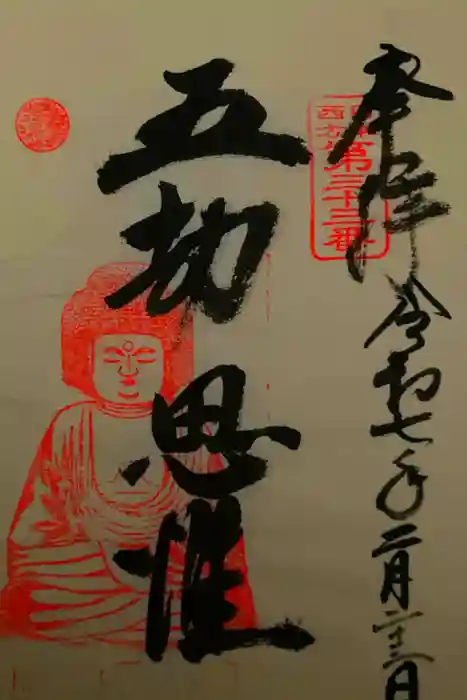 奉拝
第三十三番
令和七年二月二十三日
五劫思惟